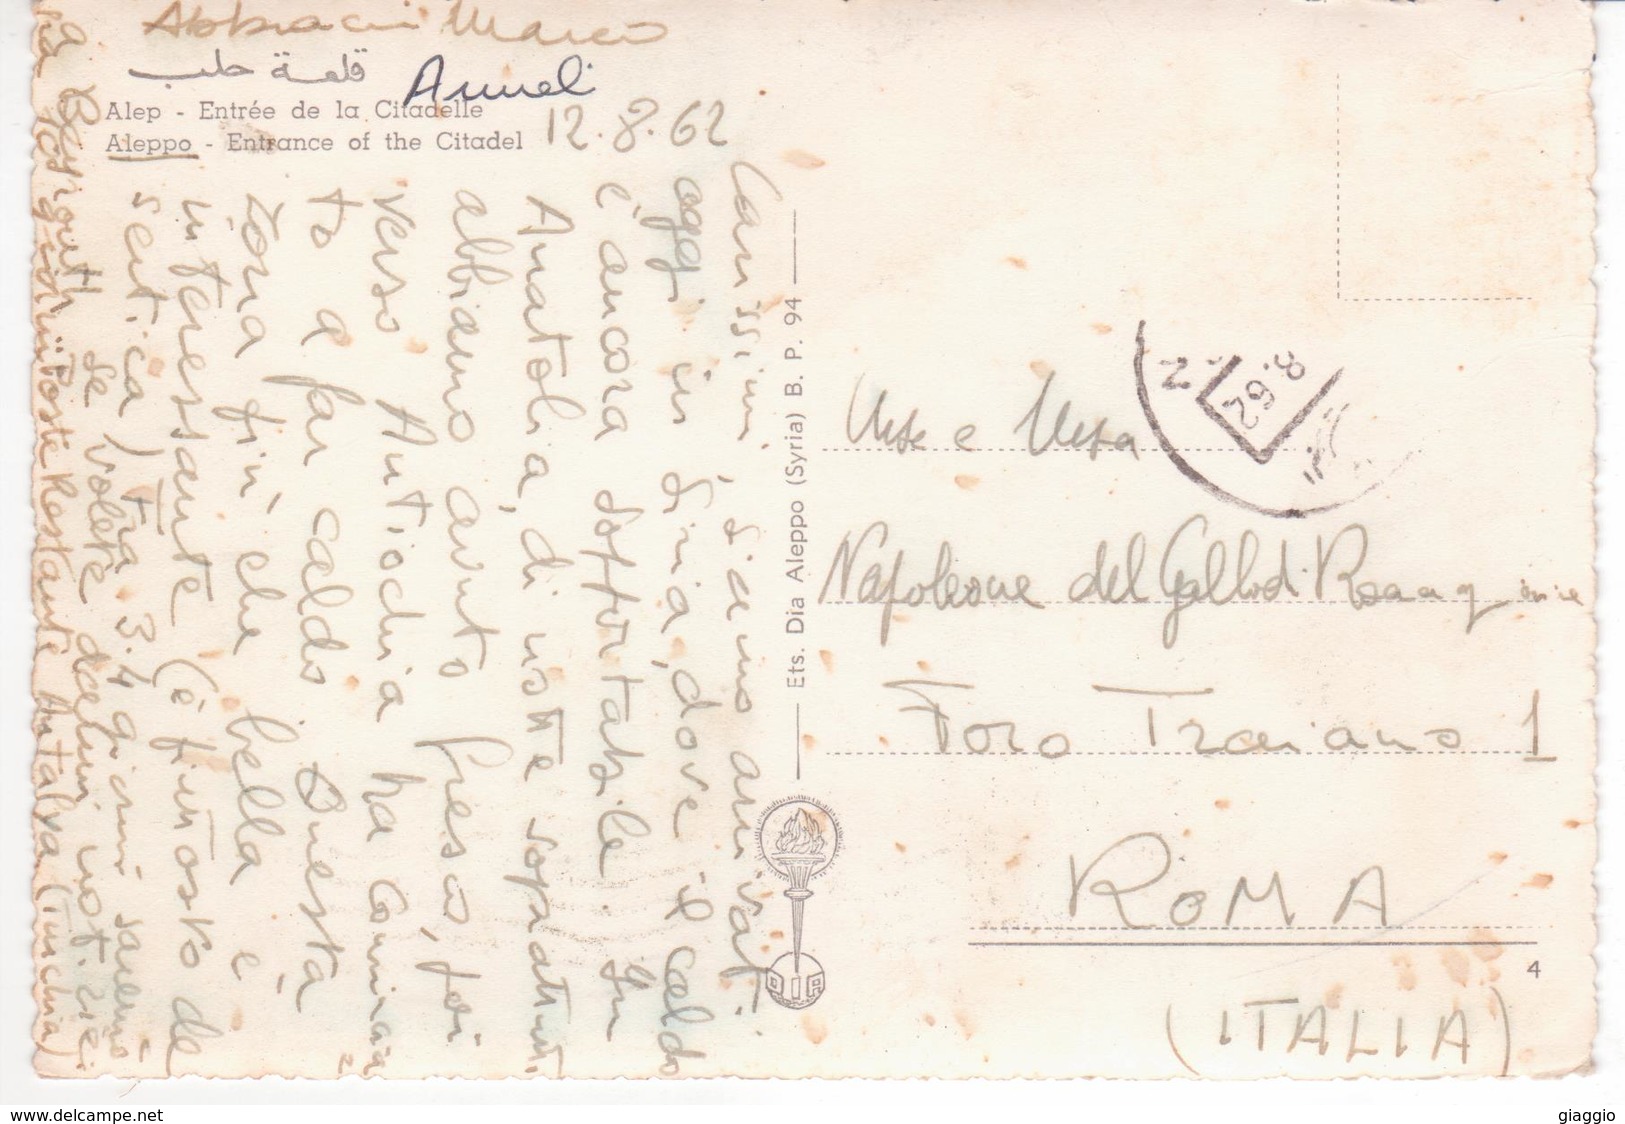 Abbracci Marco
قلعة حلب
Anneli
Alep - Entrée de la Citadelle
Aleppo - Entrance of the Citadel
12.8.62
Carissimi, siamo arrivati
oggi in Siria, dove il caldo
è ancora sopportabile. In
Anatolia, di notte soprattutto
abbiamo avuto fresco, poi
verso Antiochia ha comincia
to a far caldo. Questa
zona più che bella è
interessante (è piuttosto de
sertica). Tra 3.4 giorni saremo
a Beyrouth. Se volete darmi notizie
Poste Restante Antalya (Turchia)
Ets. Dia Aleppo (Syria) B. P. 94
8.62
N
Urse e
Napoleone del Gallo di
Foro Traiano 1
ROMA
4
(ITALIA)
www.delcampe.net
giaggio